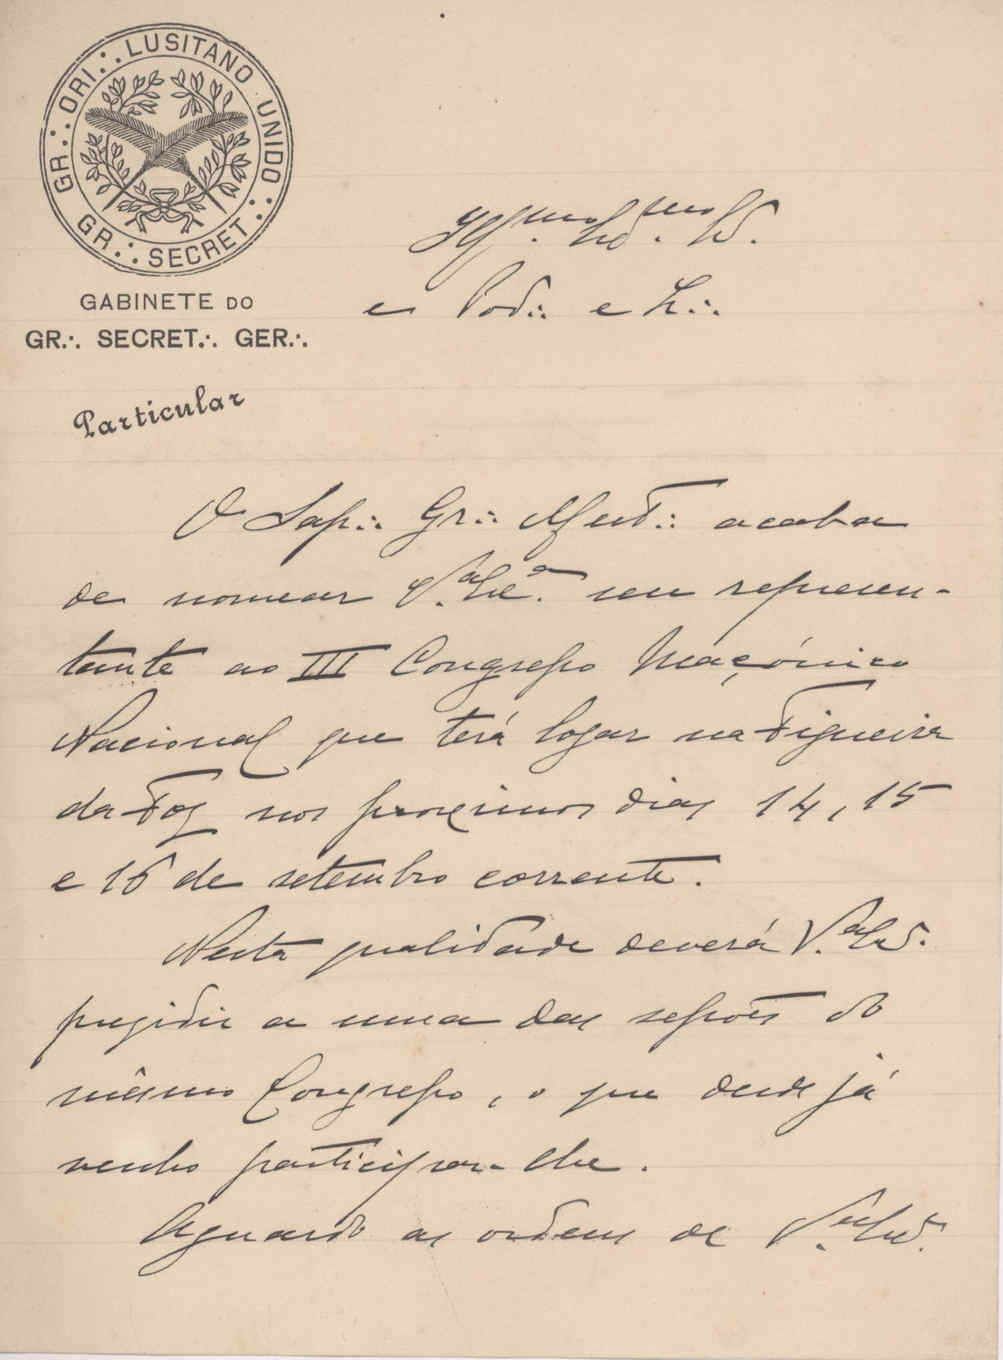 GR∴ ORI∴ LUSITANO UNIDO∴
GR∴ SECRET∴
GABINETE DO
GR∴ SECRET∴ GER∴
Particular
Illmo. Exmo. Sr.
e Pod∴ e Ir∴
O Sap∴ Gr∴ Mest∴ acaba
de nomear V.a Ex.a seu represen-
tante ao III Congresso Maçónico
Nacional que terá logar na Figueira
da Foz nos proximos dias 14, 15
e 16 de setembro corrente.
Nesta qualidade deverá V.a Ex.
presidir a uma das sessões do
mêsmo Congresso, o que desde já
venho participar-lhe.
Aguardo as ordens de V.a Ex.